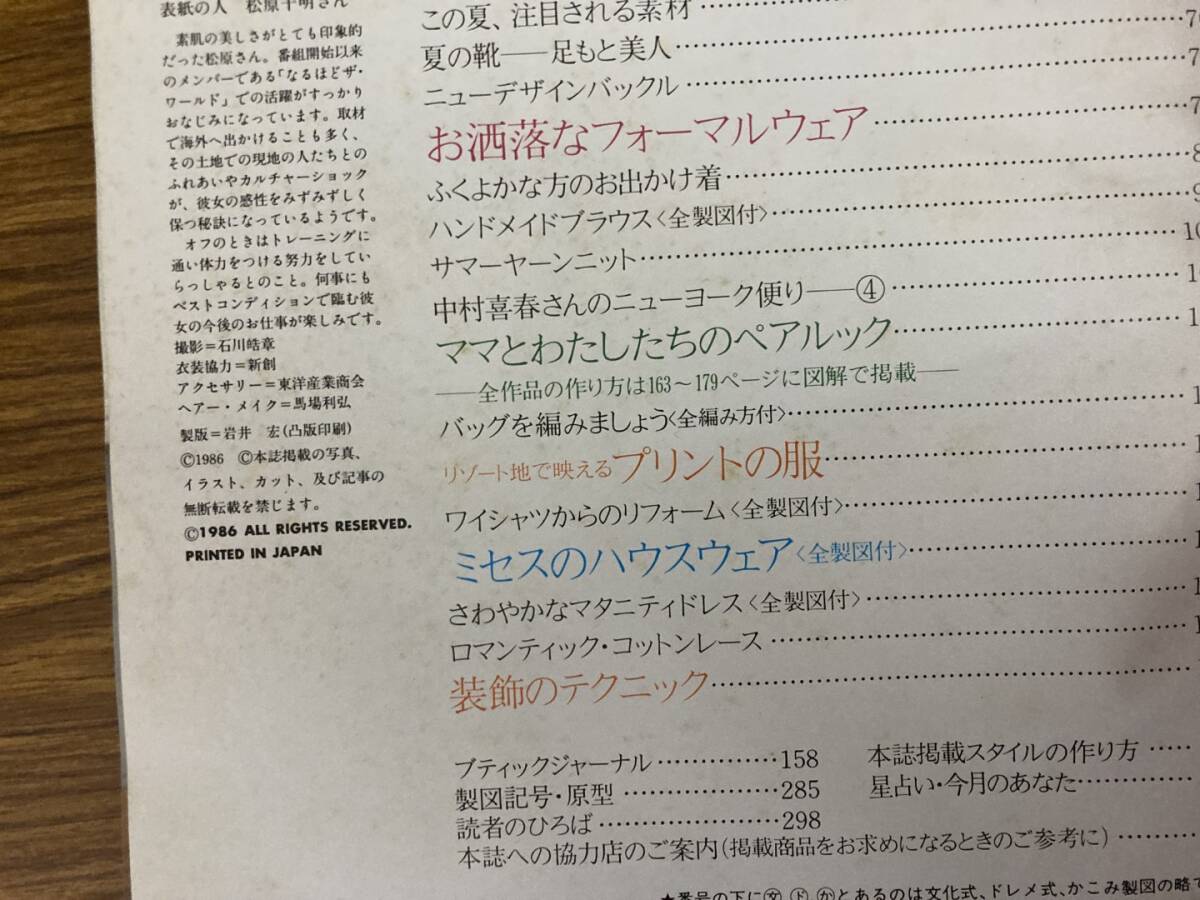 表紙の人 松原千明さん
素肌の美しさがとても印象的
だった松原さん。番組開始以来
のメンバーである「なるほどザ・
ワールド」での活躍がすっかり
おなじみになっています。取材
で海外へ出かけることも多く、
その土地での現地の人たちとの
ふれあいやカルチャーショック
が、彼女の感性をみずみずしく
保つ秘訣になっているようです。
オフのときはトレーニングに
通い体力をつける努力をしてい
らっしゃるとのこと。何事にも
ベストコンディションで臨む彼
女の今後のお仕事が楽しみです。
撮影=石川皓章
衣装協力=新創
アクセサリー=東洋産業商会
ヘアー・メイク=馬場利弘
製版=岩井 宏(凸版印刷)
©1986 ©本誌掲載の写真、
イラスト、カット、及び記事の
無断転載を禁じます。
©1986 ALL RIGHTS RESERVED.
PRINTED IN JAPAN
この夏、注目される素材
夏の靴──足もと美人
ニューデザインバックル
お洒落なフォーマルウェア
ふくよかな方のお出かけ着
ハンドメイドブラウス〈全製図付〉
サマーヤーンニット
中村喜春さんのニューヨーク便り──④
ママとわたしたちのペアルック
──全作品の作り方は163〜179ページに図解で掲載──
バッグを編みましょう〈全編み方付〉
リゾート地で映えるプリントの服
ワイシャツからのリフォーム〈全製図付〉
ミセスのハウスウェア〈全製図付〉
さわやかなマタニティドレス〈全製図付〉
ロマンティック・コットンレース
装飾のテクニック
ブティックジャーナル……………158
製図記号・原型…………………285
読者のひろば……………………298
本誌掲載スタイルの作り方……
星占い・今月のあなた…………
本誌への協力店のご案内(掲載商品をお求めになるときのご参考に)…………
★番号の下に㊛ ㋣ ㋕とあるのは文化式、ドレメ式、かこみ製図の略で